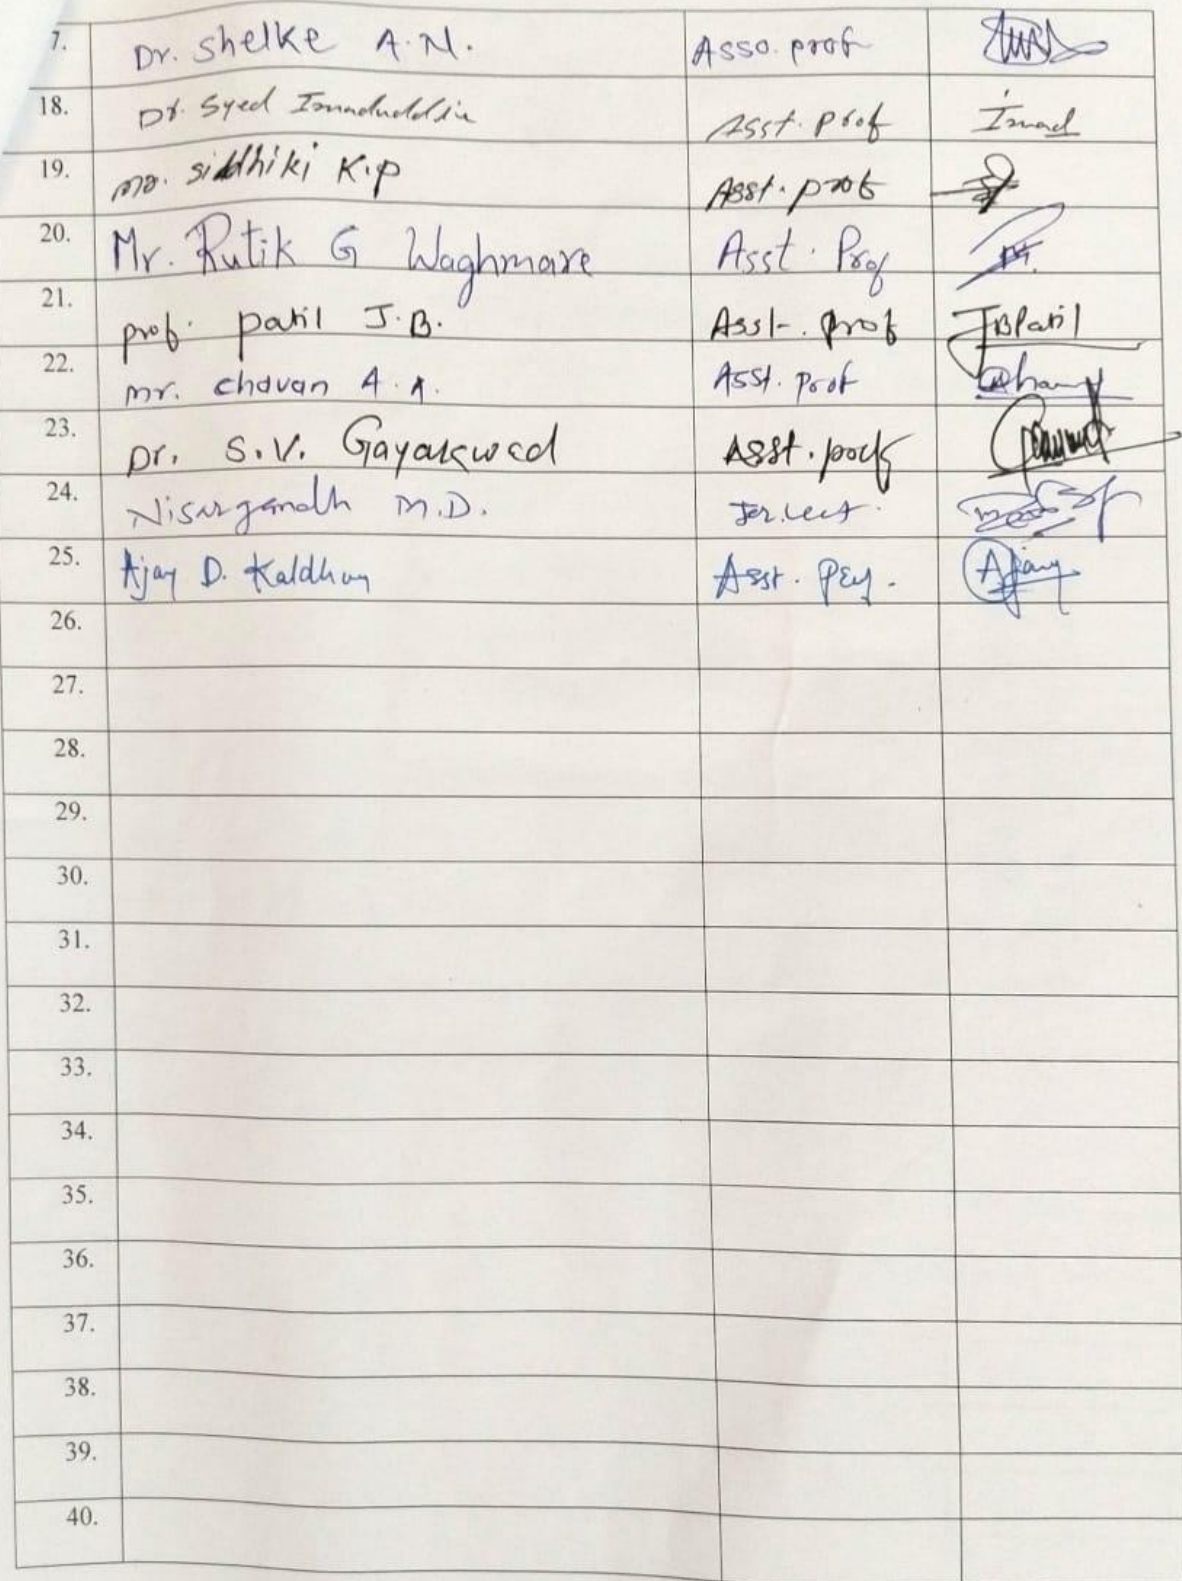 7. Dr. Shelke A.N. Asso. prof
18. Dr. Syed Imaduddin Asst. Prof Imad
19. Mo. Siddhiki K.P Asst. prof
20. Mr. Rutik G Waghmare Asst. Prof
21. prof. patil J.B. Asst. prof JBPatil
22. mr. chavan A.A. Asst. prof
23. Dr. S.V. Gayakwad Asst. prof
24. Nisargandh M.D.
25. Ajay D. Asst. Ajay
26.
27.
28.
29.
30.
31.
32.
33.
34.
35.
36.
37.
38.
39.
40.